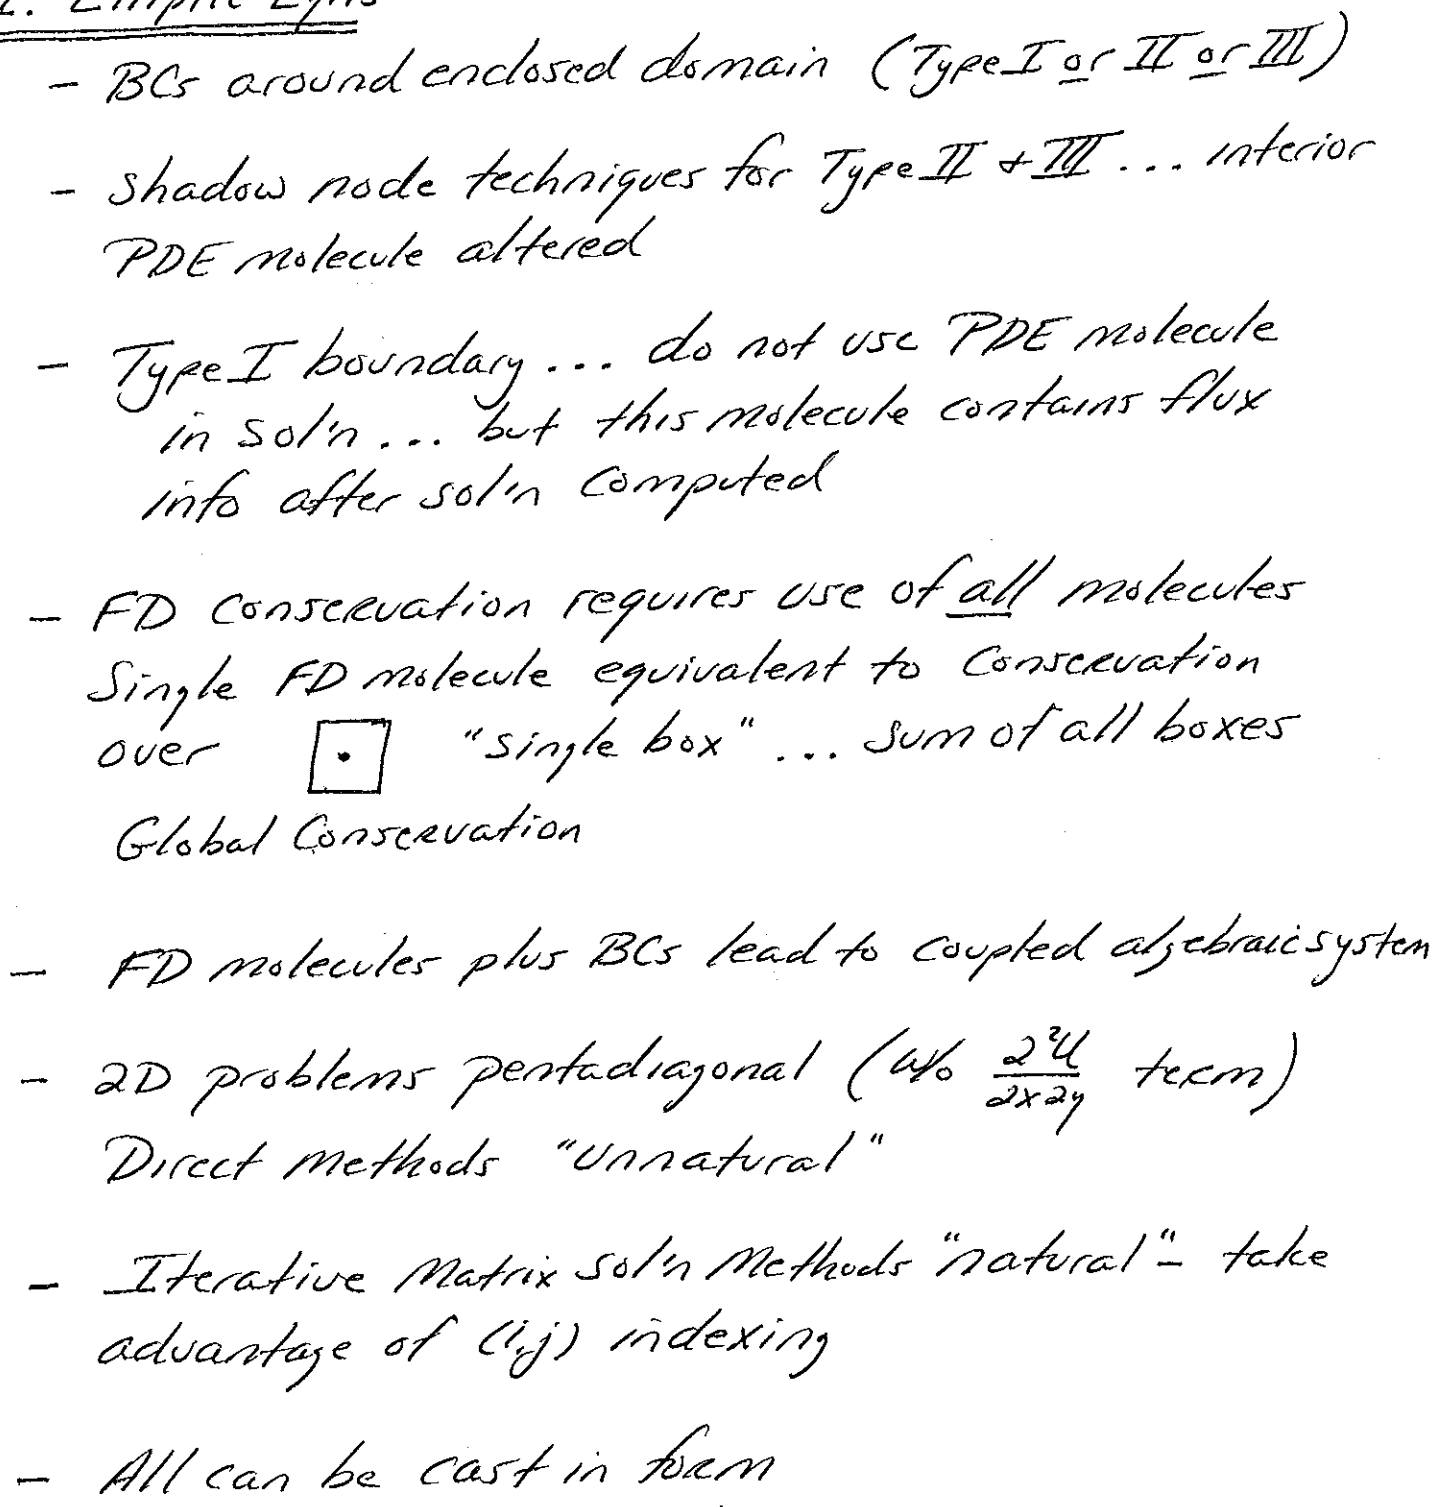 Elliptic Eqns
- BCs around enclosed domain (Type I or II or III)
- Shadow node techniques for Type II + III ... interior
PDE molecule altered
- Type I boundary ... do not use PDE molecule
in sol'n ... but this molecule contains flux
info after sol'n computed
- FD Conservation requires use of all molecules
Single FD molecule equivalent to Conservation
over "single box" ... sum of all boxes
Global Conservation
- FD molecules plus BCs lead to coupled algebraic system
- 2D problems pentadiagonal (w/o ∂²U/∂x∂y term)
Direct Methods "Unnatural"
- Iterative Matrix Sol'n Methods "natural" - take
advantage of (i,j) indexing
- All can be cast in form